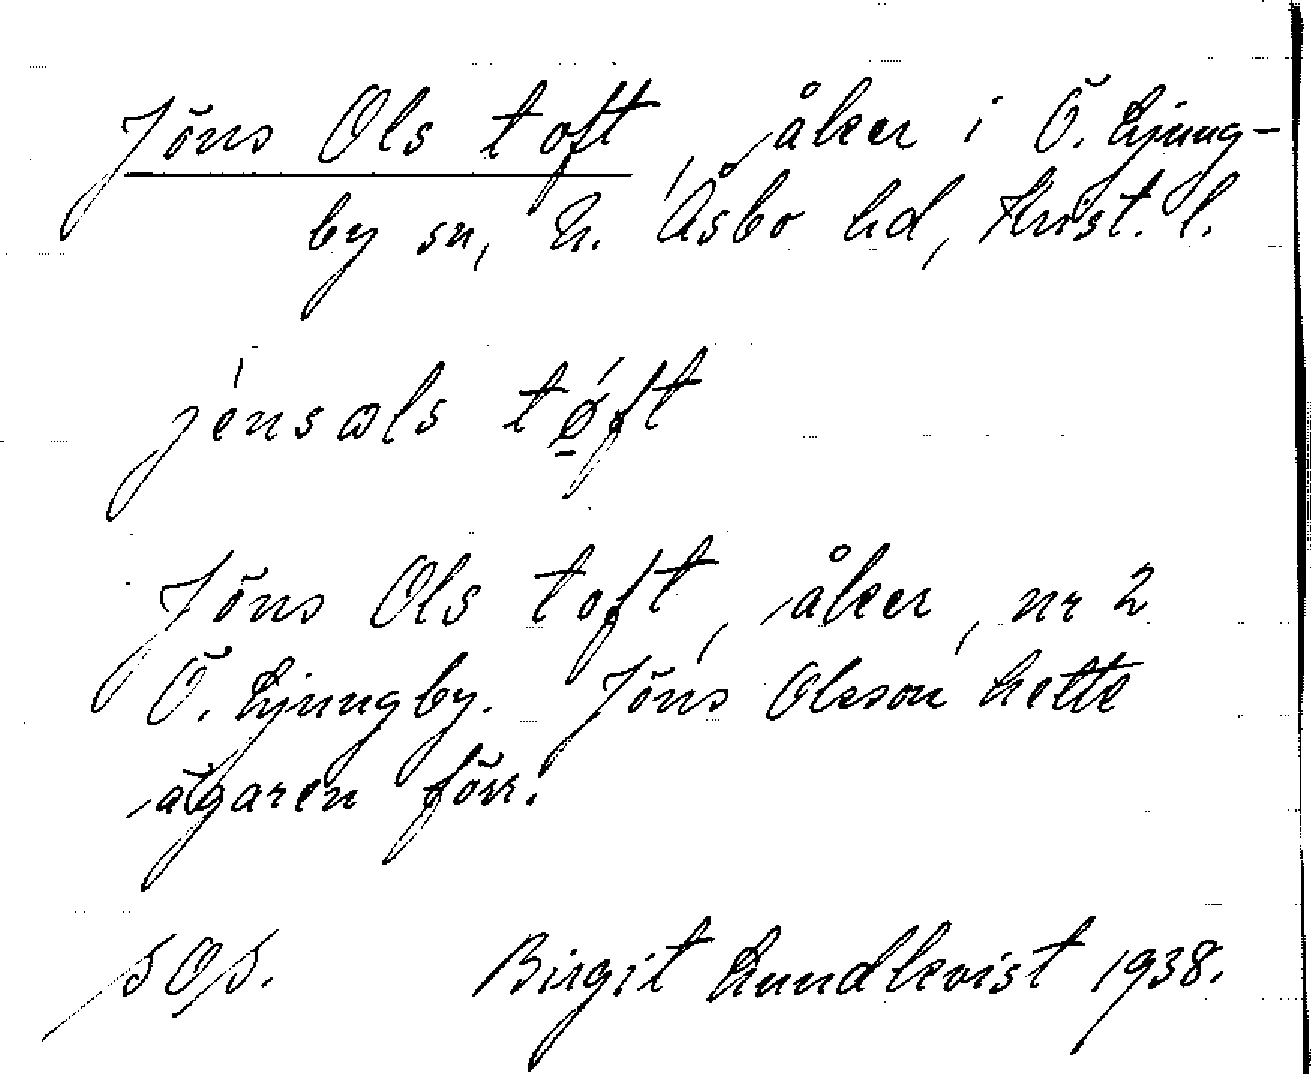 Jöns Ols toft, åker i Ö. Ljung-
by sn, N. Åsbo hd, Krist. l.
jénsꞷls tǿ̱ft
Jöns Ols toft, åker, nr 2
Ö. Ljungby. Jöns Olsson hette
ägaren förr.
SOS. Birgit Lundkvist 1938.